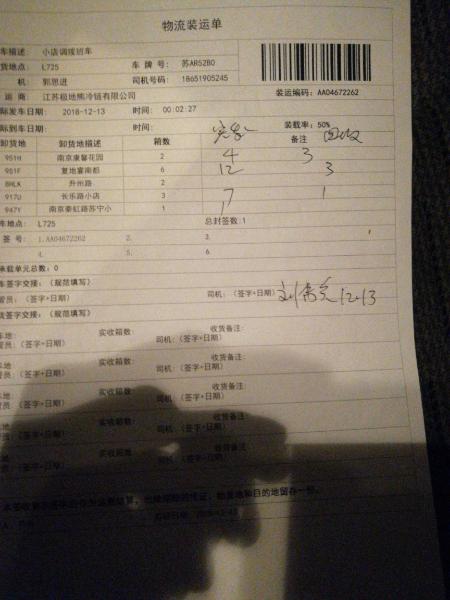 物流装运单
车描述: 小店调拨班车
货地点: L725 车 牌 号: 苏AR52B0
机: 郭思进 司机号码: 18651905245
运 商: 江苏极地熊冷链有限公司 装运编码: AA04672262
际发车日期: 2018-12-13 时间: 00:02:27
际到车日期: 时间: 装载率: 50%
卸货地 卸货地描述 箱数 备注
951H 南京康馨花园 2 4 3
951F 复地宴南都 6 12 3
8HLK 升州路 2
917U 长乐路小店 3 7 1
947Y 南京秦虹路苏宁小 1 1
车地点: L725 总封签数:1
签 号: 1.AA04672262 2. 3.
4. 5. 6.
承载单元总数: 0
车签字交接: (规范填写)
管员: (签字+日期) 司机: (签字+日期) 12.13
货签字交接: (规范填写)
车地: 实收箱数: 收货备注:
管员: (签字+日期) 司机: (签字+日期)
车地: 实收箱数: 收货备注:
管员: (签字+日期) 司机: (签字+日期)
车地: 实收箱数: 收货备注:
管员: (签字+日期) 司机: (签字+日期)
车地: 实收箱数: 收货备注:
管员: (签字+日期) 司机: (签字+日期)